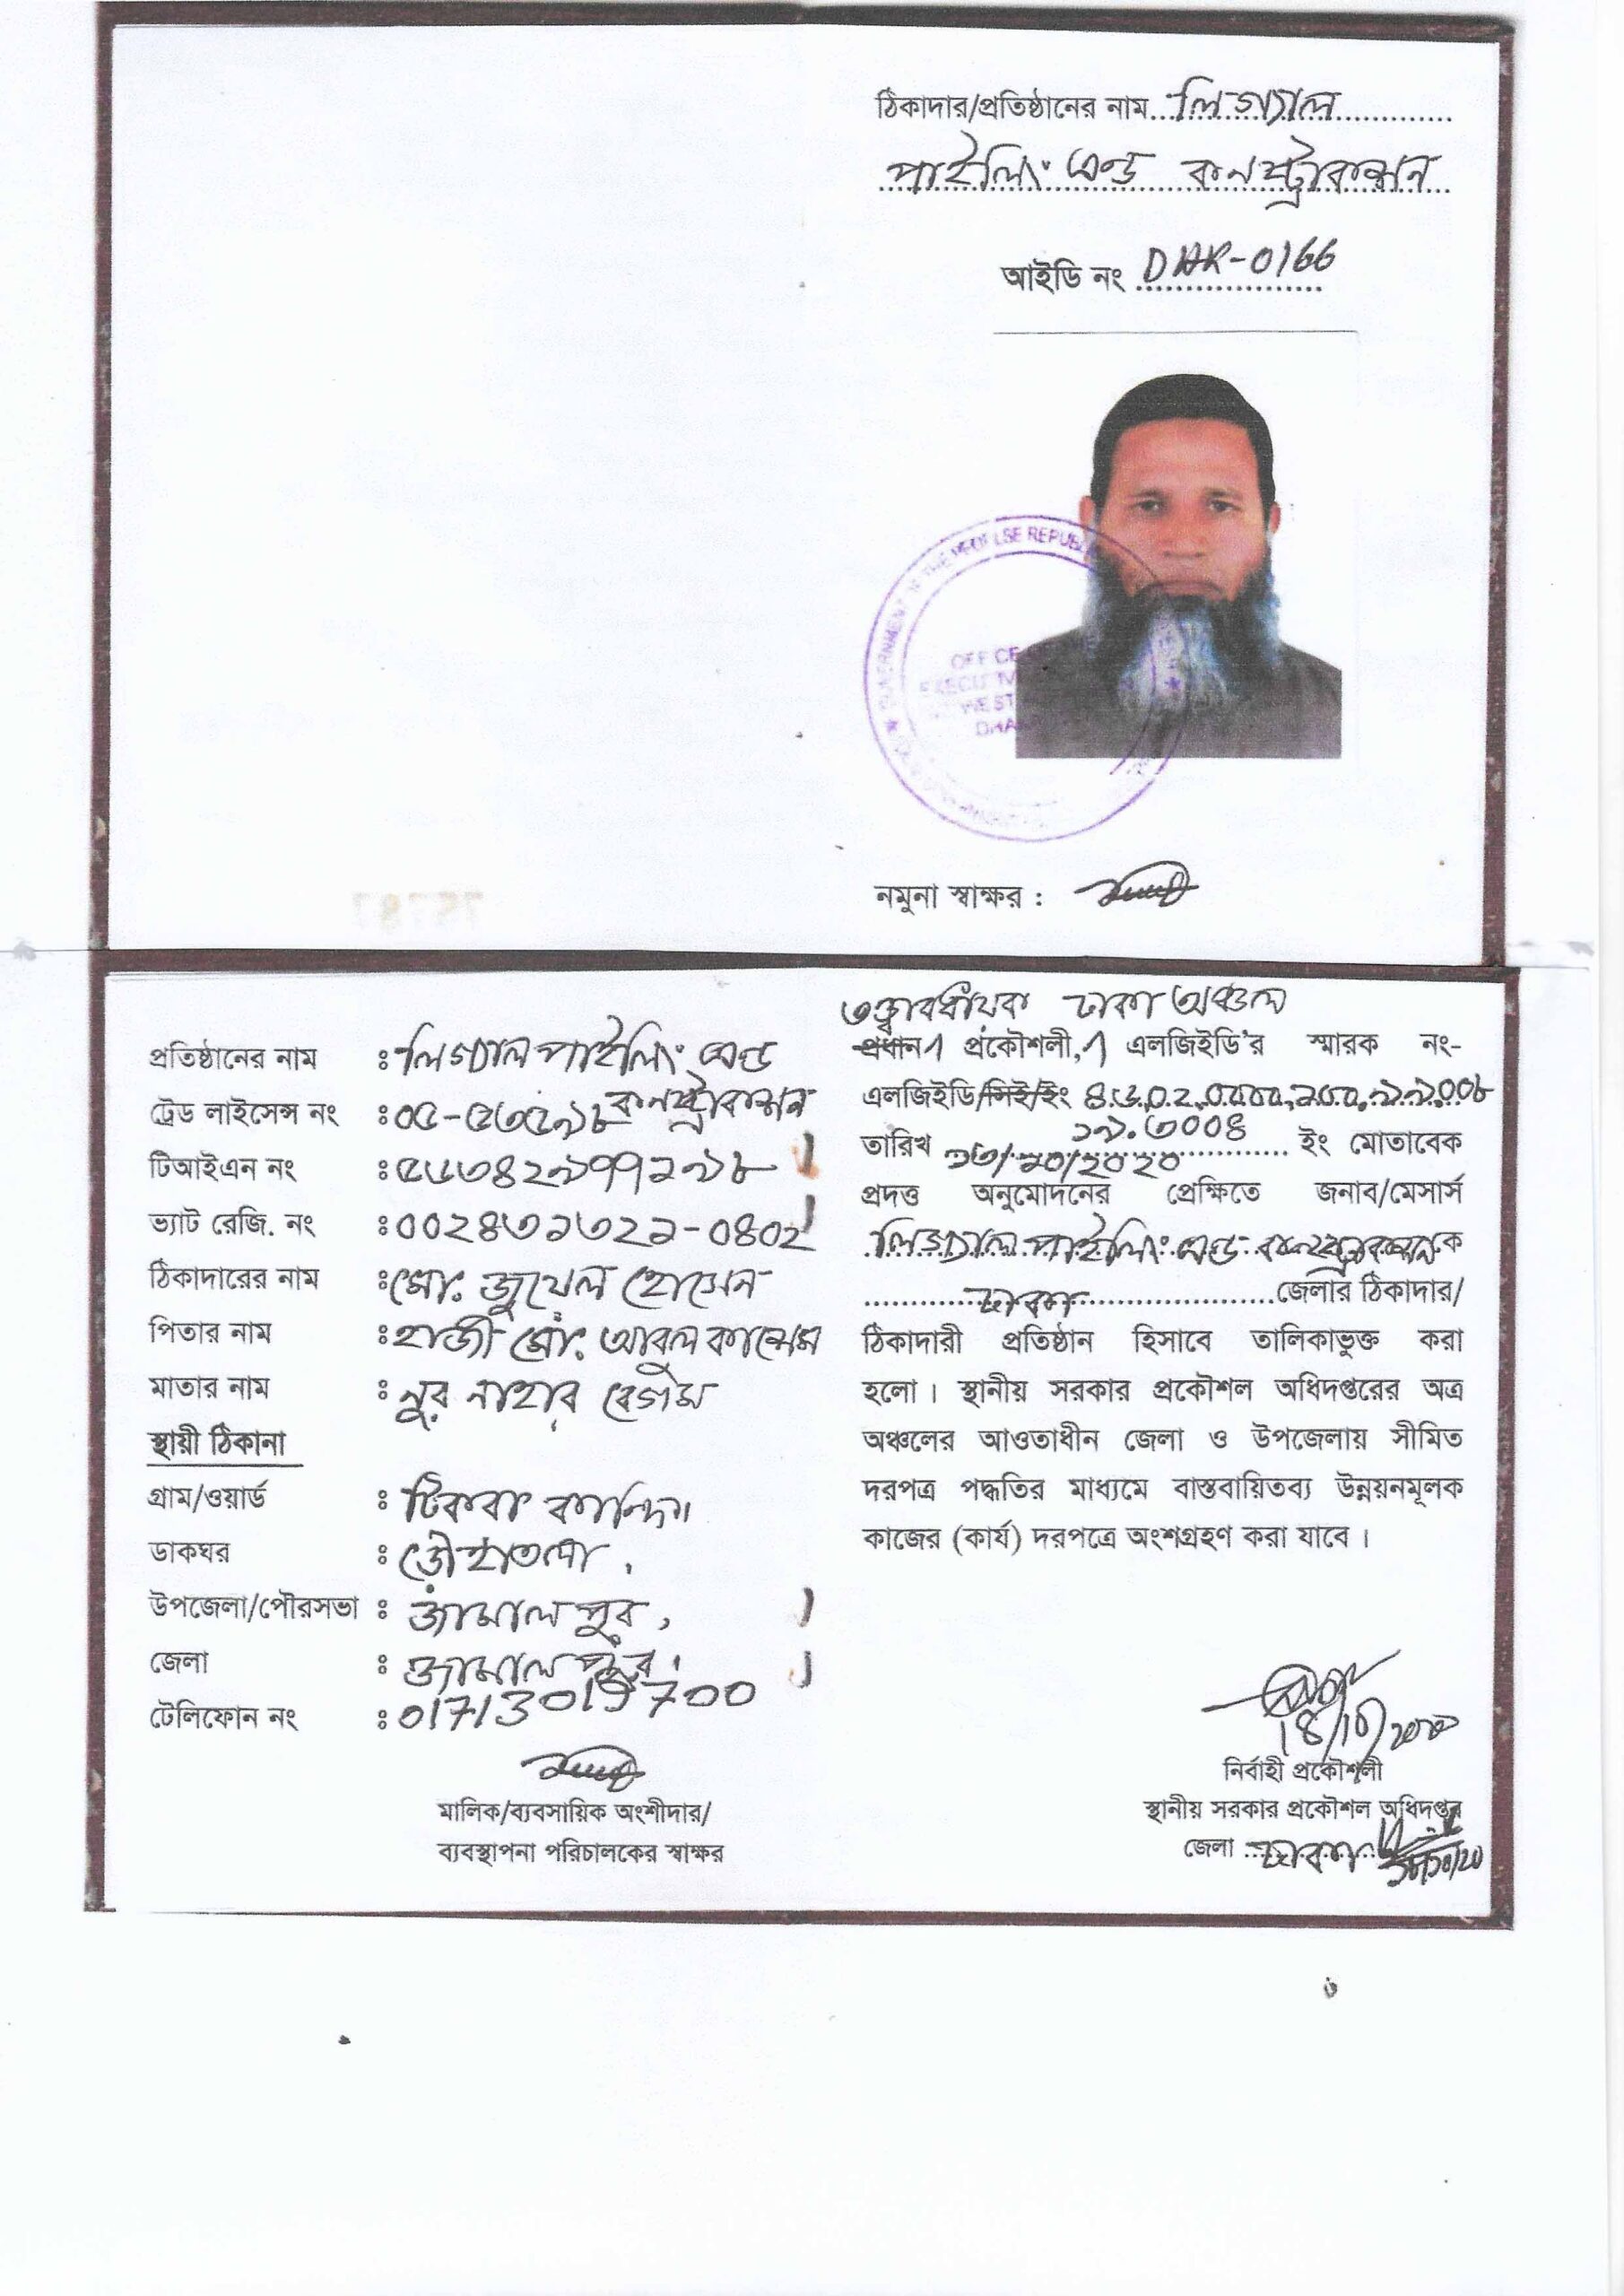 ঠিকাদার/প্রতিষ্ঠানের নাম...লিগ্যাল
পাইলিং এন্ড কনস্ট্রাকশন
আইডি নং DHK-0166
GOVERNMENT REPUB
OFFICE
EXECUTIV
WEST
DHA
নমুনা স্বাক্ষর :
75787
প্রতিষ্ঠানের নাম : লিগ্যাল পাইলিং এন্ড
কনস্ট্রাকশন
ট্রেড লাইসেন্স নং : ০৫-৫৩৫৯৮
টিআইএন নং : ৫৬৩৪২৯৭৭১৯৮
ভ্যাট রেজি. নং : ০০২৪৩১৩২১-০৪০২
ঠিকাদারের নাম : মো. জুয়েল হোসেন
পিতার নাম : হাজী মো. আবুল কাশেম
মাতার নাম : নুর নাহার বেগম
স্থায়ী ঠিকানা
গ্রাম/ওয়ার্ড :
ডাকঘর :
উপজেলা/পৌরসভা : জামালপুর,
জেলা : জামালপুর।
টেলিফোন নং : 01713015700
মালিক/ব্যবসায়িক অংশীদার/
ব্যবস্থাপনা পরিচালকের স্বাক্ষর
তত্ত্বাবধায়ক ঢাকা অঞ্চল
প্রধান প্রকৌশলী, এলজিইডি'র স্মারক নং-
এলজিইডি/সিই/ইং ৪৬.০২.০০০০.২০০.৯৯.০০৮
১৯.৩০০৪
তারিখ ১৩/১০/২০২০ ইং মোতাবেক
প্রদত্ত অনুমোদনের প্রেক্ষিতে জনাব/মেসার্স
লিগ্যাল পাইলিং এন্ড কনস্ট্রাকশন কে
ঢাকা জেলার ঠিকাদার/
ঠিকাদারী প্রতিষ্ঠান হিসাবে তালিকাভুক্ত করা
হলো। স্থানীয় সরকার প্রকৌশল অধিদপ্তরের অত্র
অঞ্চলের আওতাধীন জেলা ও উপজেলায় সীমিত
দরপত্র পদ্ধতির মাধ্যমে বাস্তবায়িতব্য উন্নয়নমূলক
কাজের (কার্য) দরপত্রে অংশগ্রহণ করা যাবে।
নির্বাহী প্রকৌশলী
স্থানীয় সরকার প্রকৌশল অধিদপ্তর
জেলা ঢাকা